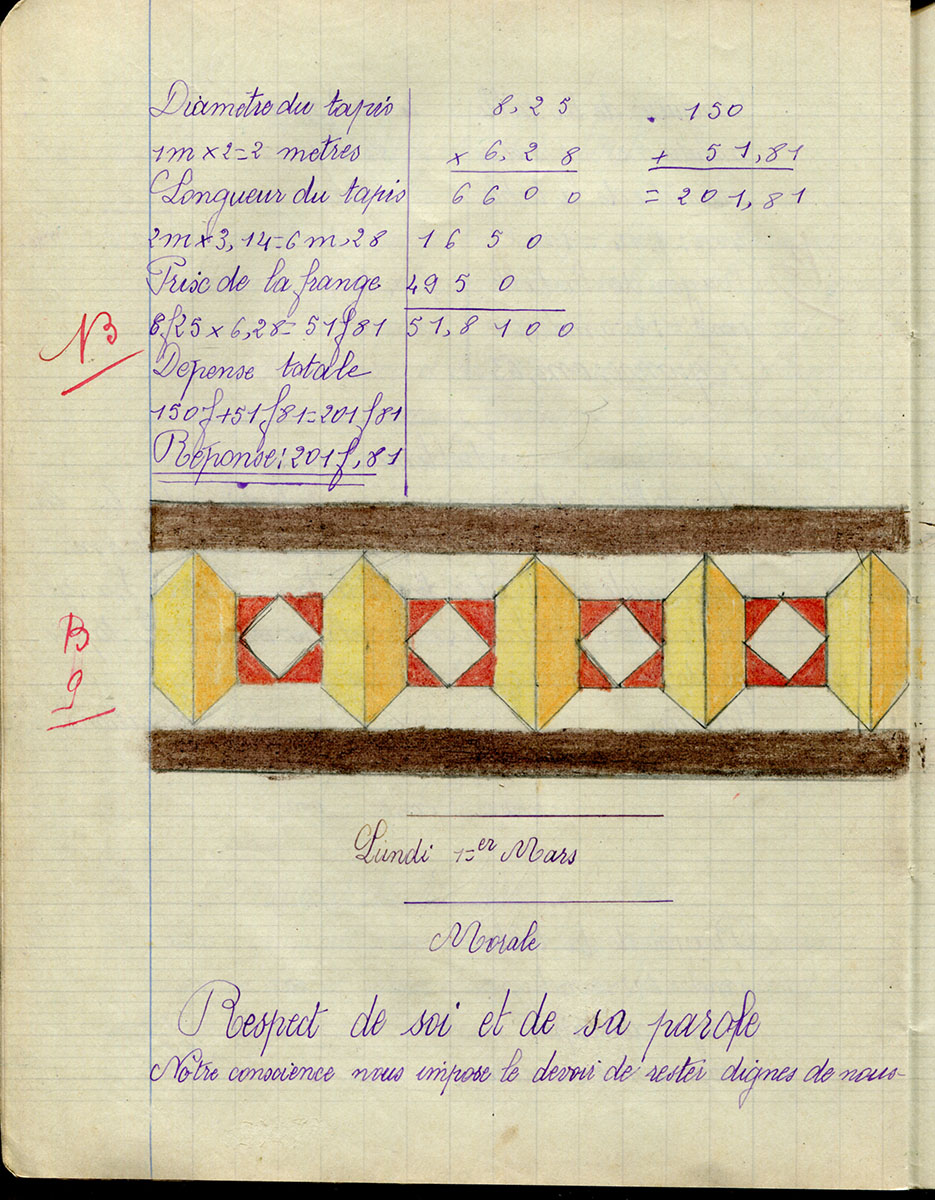 Diamètre du tapis
1m × 2 = 2 mètres
Longueur du tapis
2m × 3,14 = 6m,28
Prix de la frange
8f25 × 6,28 = 51f81
Dépense totale
150f + 51f81 = 201f81
Réponse : 201f,81
8,25
× 6,28
6600
1650
4950
51,8100
150
+ 51,81
= 201,81
B
9
Lundi 1er Mars
Morale
Respect de soi et de sa parole
Notre conscience nous impose le devoir de rester dignes de nous-